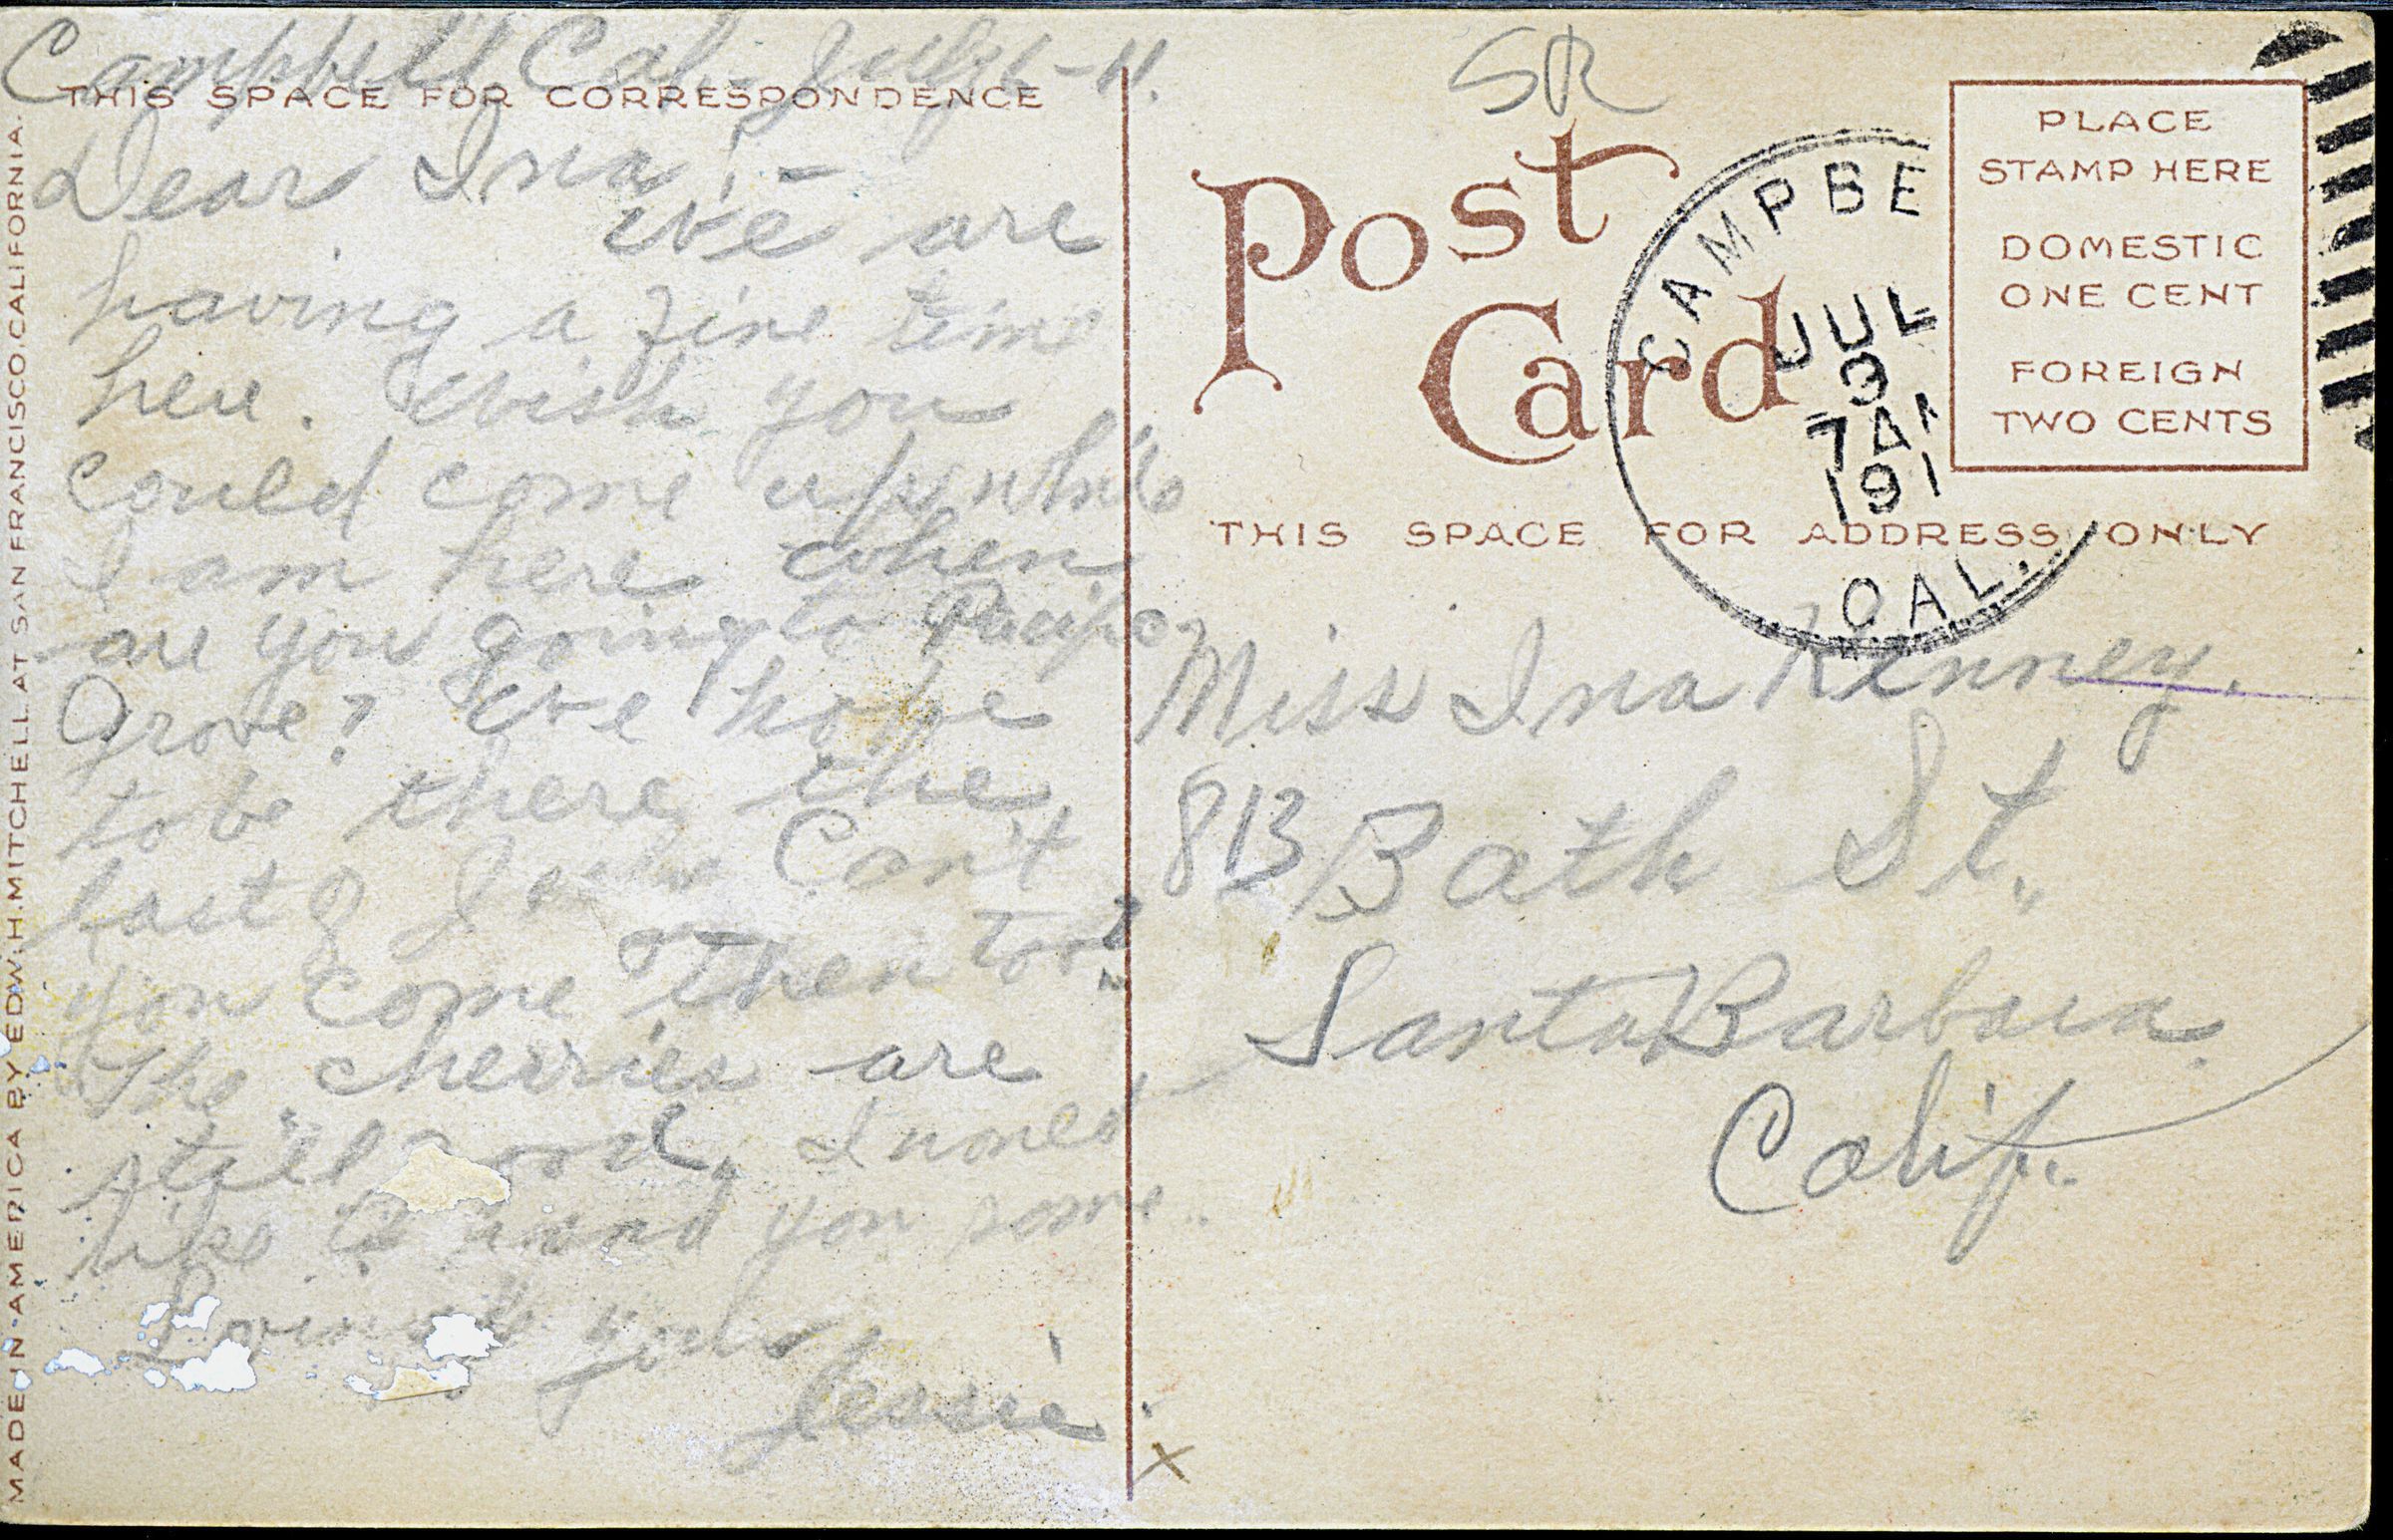 Campbell Cal. July 1-11.
THIS SPACE FOR CORRESPONDENCE
Dear Ina:-
We are
having a fine time
here. Wish you
could come up while
I am here when
are you going to Pacific
Grove? We hope
to be there the
last of July Can't
you come then too?
The cherries are
still good. I would
like to send you some.
Lovingly yours
Jessie
MADE IN AMERICA BY EDW. H. MITCHELL AT SAN FRANCISCO, CALIFORNIA.
SR
Post
Card
CAMPBE
JUL
3
7 AM
191
CAL.
PLACE
STAMP HERE
DOMESTIC
ONE CENT
FOREIGN
TWO CENTS
THIS SPACE FOR ADDRESS ONLY
Miss Ina Kenney.
813 Bath St.
Santa Barbara
Calif.
X